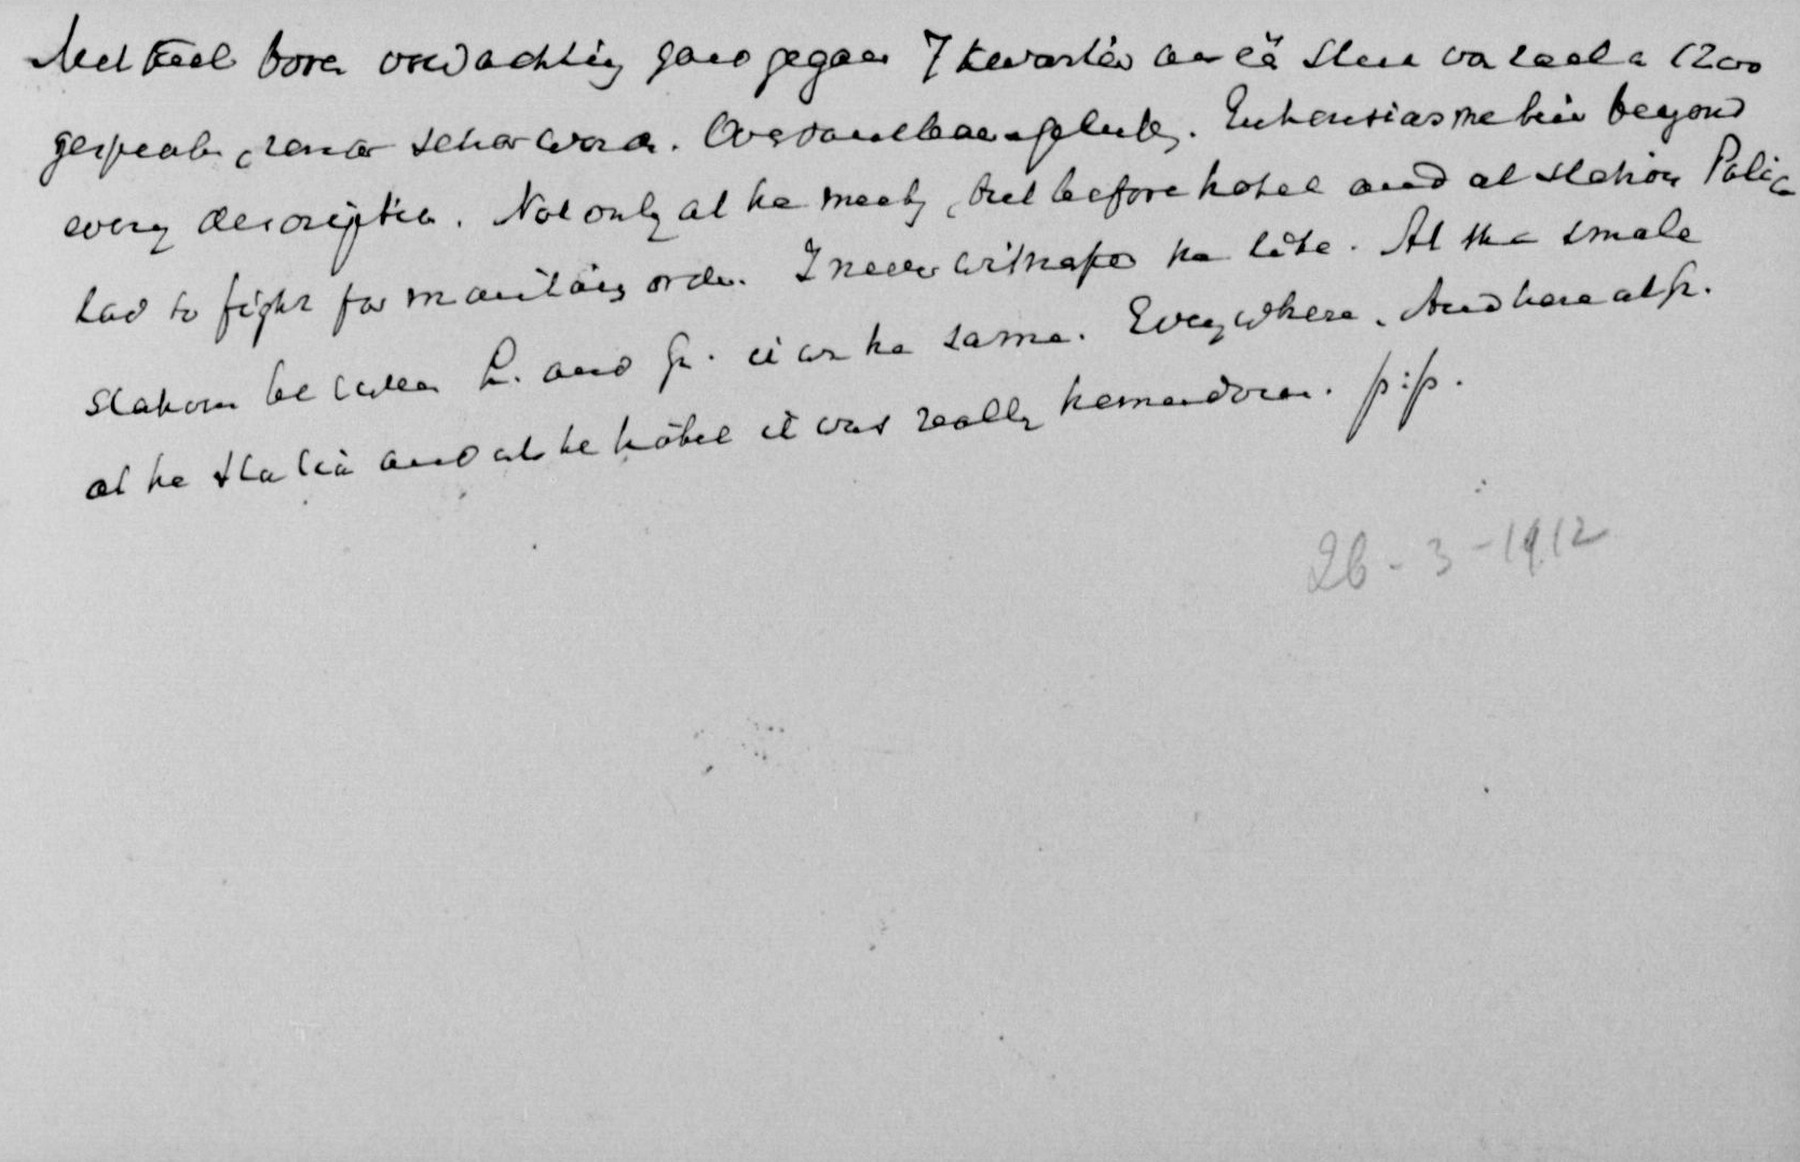 Met keel boven verwachting goed gegaan 7 kwartier aan één stuk voor zaal à 1200
gesproken, zonder schor worden. Overdonderend gelukt. Enthousiasme hier beyond
every description. Not only at the meeting, but before hotel and at station Police
had to fight for maintaing order. I never witnessed the like. At the smale
stations between L. and Gr. it was the same. Everywhere. And here at Gr.
at the station and at the hôtel it was really tremendous. p:p.
26-3-1912